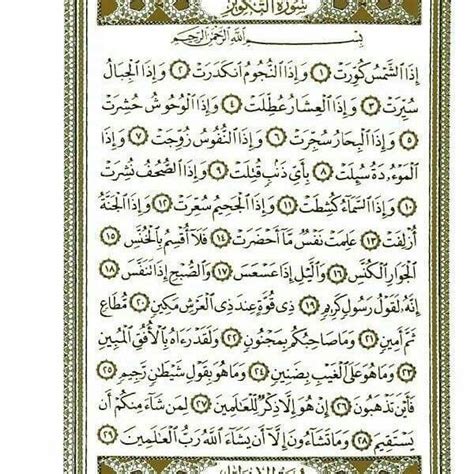 سُورَةُ التَّكْوِيرِ
بِسْمِ اللَّهِ الرَّحْمَٰنِ الرَّحِيمِ
إِذَا الشَّمْسُ كُوِّرَتْ ١ وَإِذَا النُّجُومُ انكَدَرَتْ ٢ وَإِذَا الْجِبَالُ
سُيِّرَتْ ٣ وَإِذَا الْعِشَارُ عُطِّلَتْ ٤ وَإِذَا الْوُحُوشُ حُشِرَتْ
٥ وَإِذَا الْبِحَارُ سُجِّرَتْ ٦ وَإِذَا النُّفُوسُ زُوِّجَتْ ٧ وَإِذَا
الْمَوْءُۥدَةُ سُئِلَتْ ٨ بِأَيِّ ذَنۢبٍ قُتِلَتْ ٩ وَإِذَا الصُّحُفُ نُشِرَتْ
١٠ وَإِذَا السَّمَاءُ كُشِطَتْ ١١ وَإِذَا الْجَحِيمُ سُعِّرَتْ ١٢ وَإِذَا الْجَنَّةُ
أُزْلِفَتْ ١٣ عَلِمَتْ نَفْسٌ مَّا أَحْضَرَتْ ١٤ فَلَا أُقْسِمُ بِالْخُنَّسِ ١٥
الْجَوَارِ الْكُنَّسِ ١٦ وَاللَّيْلِ إِذَا عَسْعَسَ ١٧ وَالصُّبْحِ إِذَا تَنَفَّسَ ١٨
إِنَّهُۥ لَقَوْلُ رَسُولٍ كَرِيمٍ ١٩ ذِي قُوَّةٍ عِندَ ذِي الْعَرْشِ مَكِينٍ ٢٠ مُّطَاعٍ
ثَمَّ أَمِينٍ ٢١ وَمَا صَاحِبُكُم بِمَجْنُونٍ ٢٢ وَلَقَدْ رَءَاهُ بِالْأُفُقِ الْمُبِينِ
٢٣ وَمَا هُوَ عَلَى الْغَيْبِ بِضَنِينٍ ٢٤ وَمَا هُوَ بِقَوْلِ شَيْطَٰنٍ رَّجِيمٍ ٢٥
فَأَيْنَ تَذْهَبُونَ ٢٦ إِنْ هُوَ إِلَّا ذِكْرٌ لِّلْعَالَمِينَ ٢٧ لِمَن شَاءَ مِنكُمْ أَن
يَسْتَقِيمَ ٢٨ وَمَا تَشَاءُونَ إِلَّا أَن يَشَاءَ اللَّهُ رَبُّ الْعَالَمِينَ ٢٩